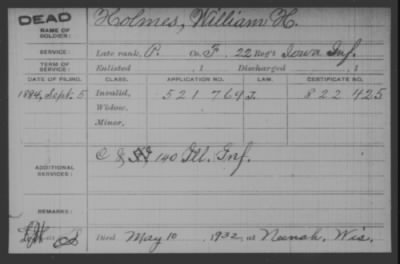 DEAD Holmes, William H.
NAME OF SOLDIER:
SERVICE: Late rank, P. Co. F, 22 Reg't Iowa Inf.
TERM OF SERVICE: Enlisted , 1 Discharged , 1
DATE OF FILING. CLASS. APPLICATION NO. LAW. CERTIFICATE NO.
1884, Sept. 5 Invalid, 521769 822425
Widow,
Minor,
ADDITIONAL SERVICES: C 140 Ill. Inf.
REMARKS:
Died May 10 1932, at Neenah, Wis.